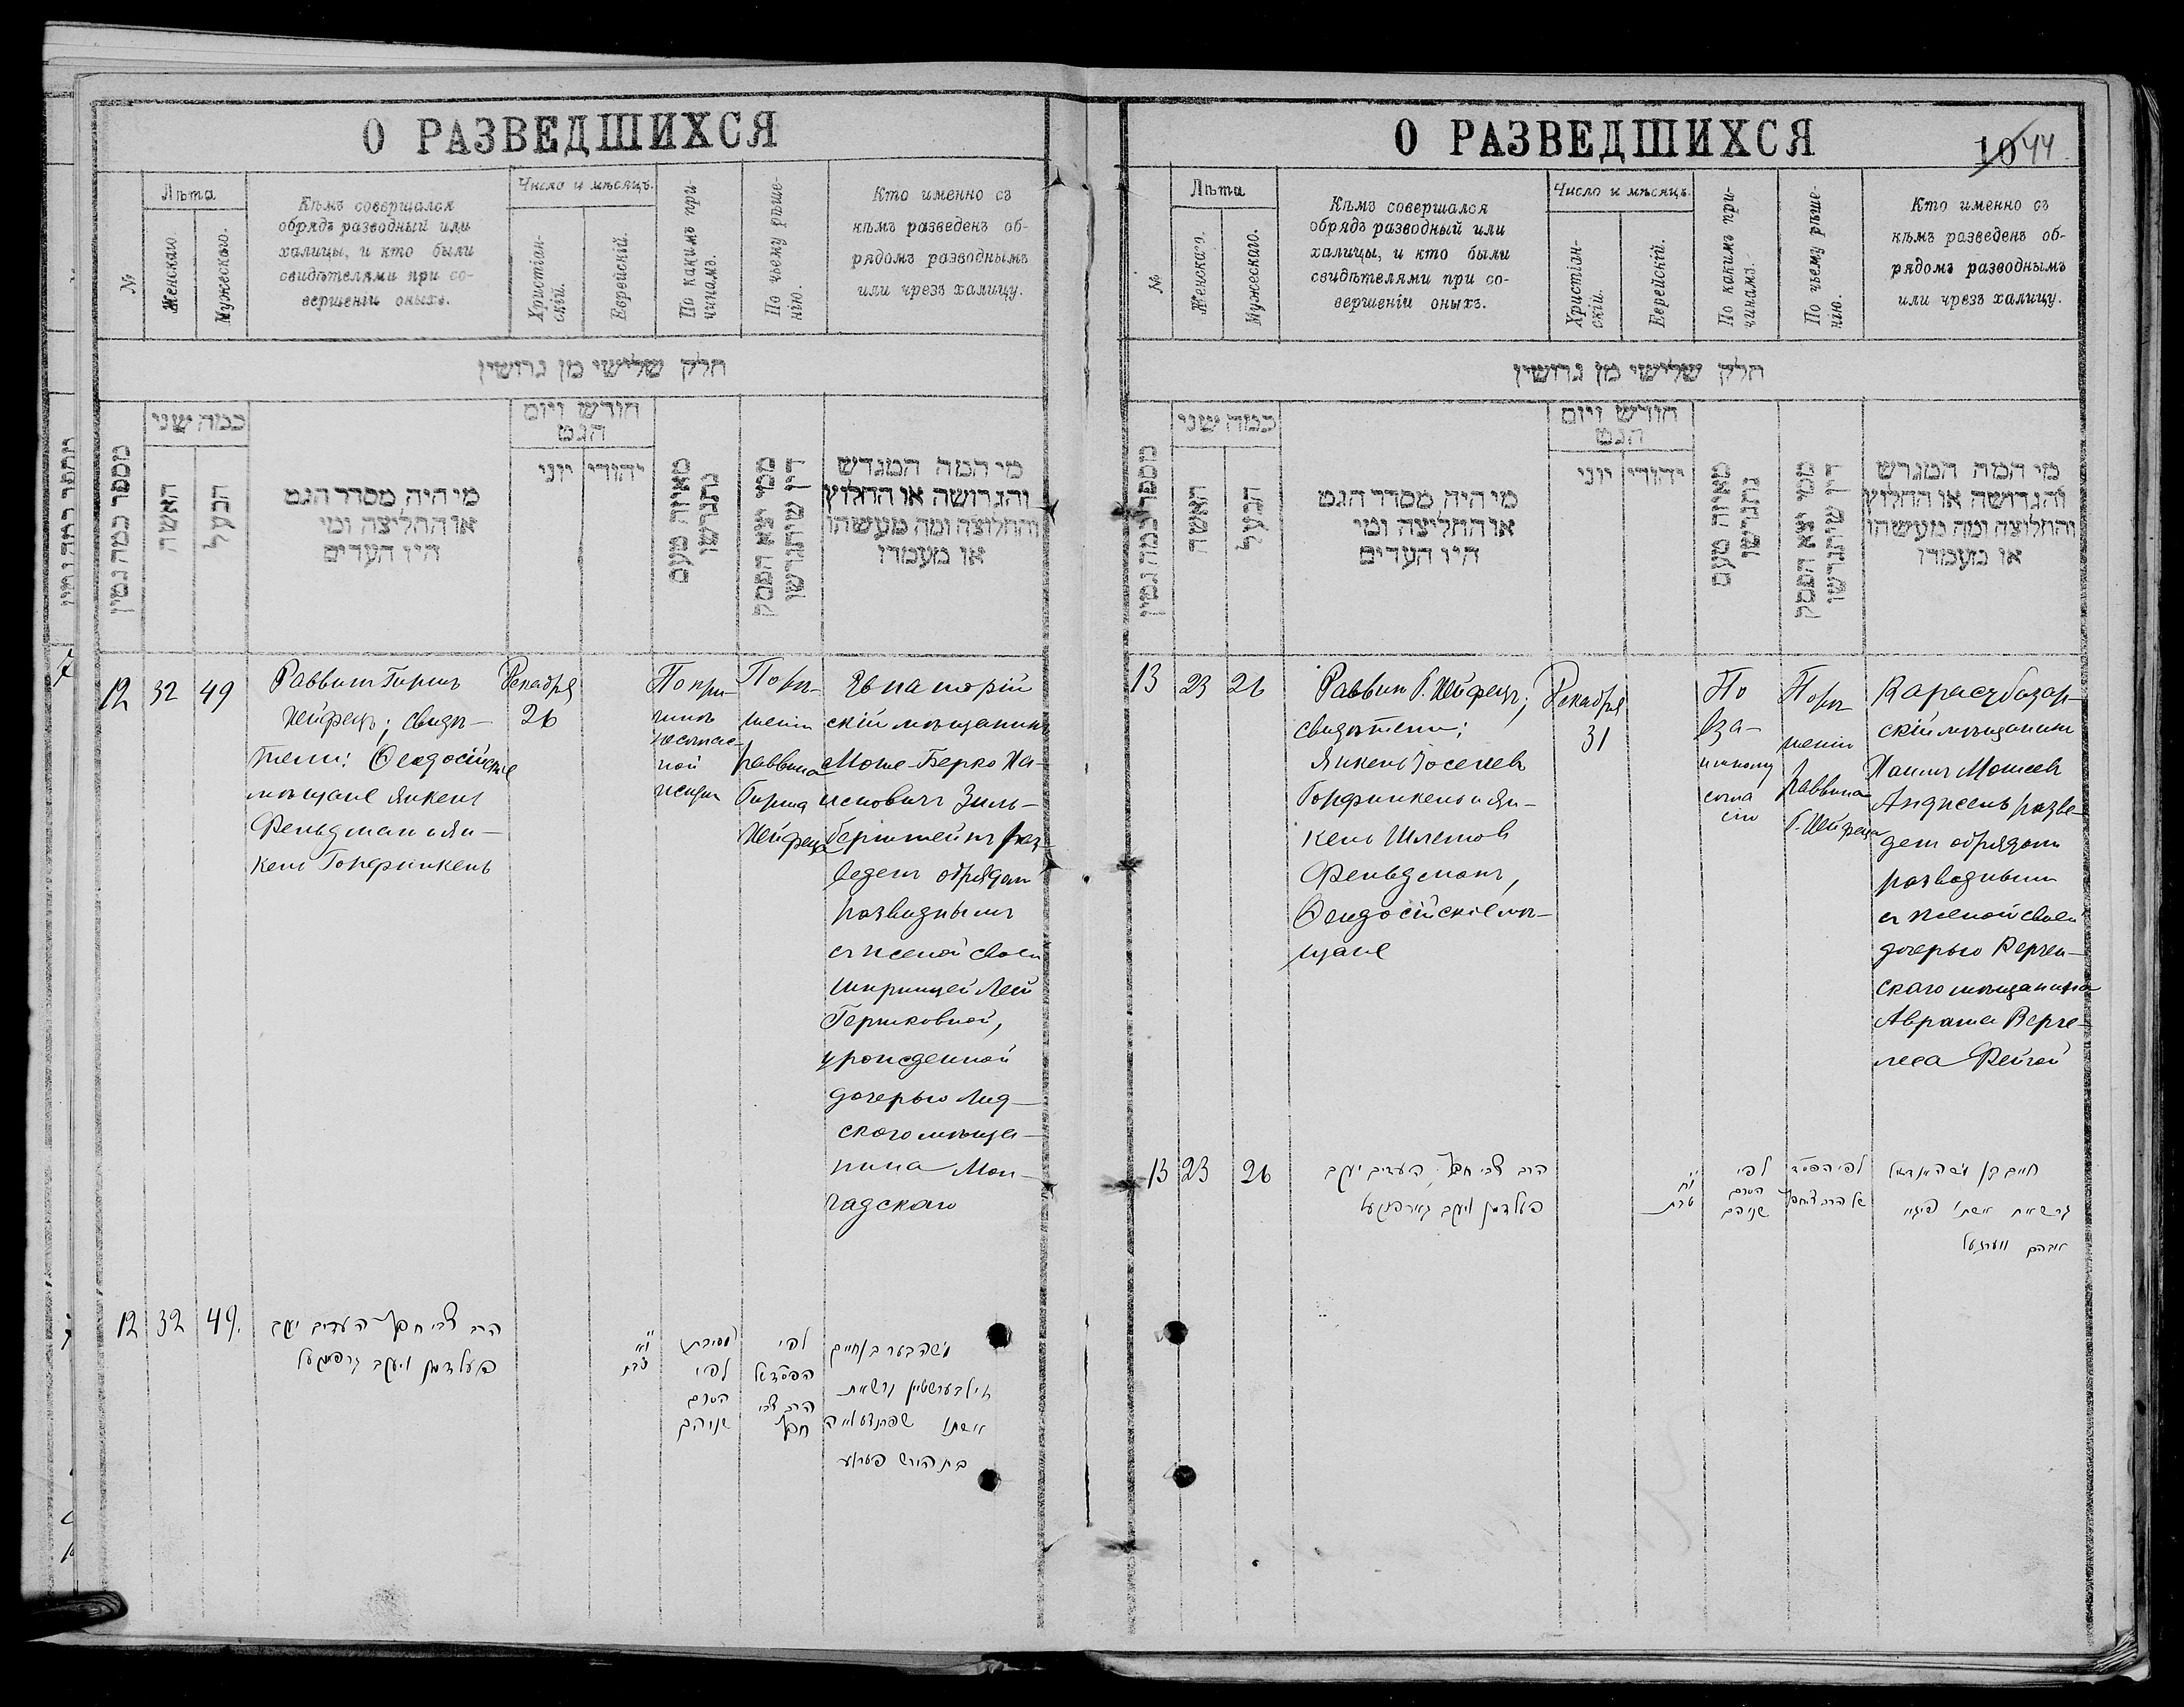 О РАЗВЕДШИХСЯ
№
Лѣта
Женскаго.
Мужескаго.
Кѣмъ совершался
обрядъ разводный или
халицы, и кто были
свидѣтелями при со-
вершеніи оныхъ.
Число и мѣсяцъ.
Христіан-
скій.
Еврейскій.
По какимъ при-
чинамъ.
По чьему рѣше-
нію.
Кто именно съ
кѣмъ разведенъ об-
рядомъ разводнымъ
или чрезъ халицу.
חלק שלישי מן גרושין
מספר כמה גטין
כמה שני
האשה
הבעל
מי היה מסדר הגט
או החליצה ומי
היו העדים
חודש ויום
הגט
יהודי
יוני
מאיזה טעם
נתגרשו
ממי יצא הפסק
דין שיתגרשו
מי המה המגרש
והגרושה או החלוץ
והחלוצה ומה מעשהו
או מעמדו
12
32
49
Раввинъ Гиршъ
Хейфецъ; свидѣ-
тели: Ѳеодосійскіе
мѣщане Янкель
Фельдман и Ян-
кель Горфинкель
Декабря
26
По при-
чинѣ
несоглас-
ной
жизни
По рѣ-
шенію
раввина
Гирша
Хейфеца
Евпаторій
скій мѣщанинъ
Моше-Берко Ха-
имовичъ Зиль-
берштейнъ раз-
веденъ обрядом
разводнымъ
съ женой своей
Шпринцей Леей
Гершковной,
урожденной
дочерью Лид-
ского мѣща-
нина Мон-
чадскаго
12
32
49.
הרב צבי חפץ העדים יעקב
פעלדמן ויעקב גרפינקעל
לפי
הסכם
שניהם
לפי
הרב צבי
חפץ
משה בער בן חיים
זילבערשטיין גרש את
אשתו
О РАЗВЕДШИХСЯ
10 44
№
Лѣта
Женскаго.
Мужескаго.
Кѣмъ совершался
обрядъ разводный или
халицы, и кто были
свидѣтелями при со-
вершеніи оныхъ.
Число и мѣсяцъ.
Христіан-
скій.
Еврейскій.
По какимъ при-
чинамъ.
По чьему рѣше-
нію.
Кто именно съ
кѣмъ разведенъ об-
рядомъ разводнымъ
или чрезъ халицу.
חלק שלישי מן גרושין
מספר כמה גטין
כמה שני
האשה
הבעל
מי היה מסדר הגט
או החליצה ומי
היו העדים
חודש ויום
הגט
יהודי
יוני
מאיזה טעם
נתגרשו
ממי יצא הפסק
דין שיתגרשו
מי המה המגרש
והגרושה או החלוץ
והחלוצה ומה מעשהו
או מעמדו
13
23
26
Раввин Г. Хейфецъ;
свидѣтели:
Янкель Іоселев
Горфинкель и Ян-
кель Шлемов
Фельдманъ,
Ѳеодосійскіе мѣ-
щане
Декабря
31
По
вза-
имному
согла
сію
По рѣ-
шенію
раввина
Г. Хейфеца
Карасубазар-
скій мѣщанинъ
Хаимъ Мошеев
Анджель разве-
денъ обрядомъ
разводнымъ
съ женой своей
дочерью Керчен-
скаго мѣщанина
Аврама Верге-
леса Фейгой
13
23
26
הרב צבי חפץ, העדים יעקב
פעלדמן ויעקב גארפינקעל
לפי
הסכם
שניהם
של הרב צבי חפץ
חיים בן משה אנדזשעל
גרש את אשתו פייגא